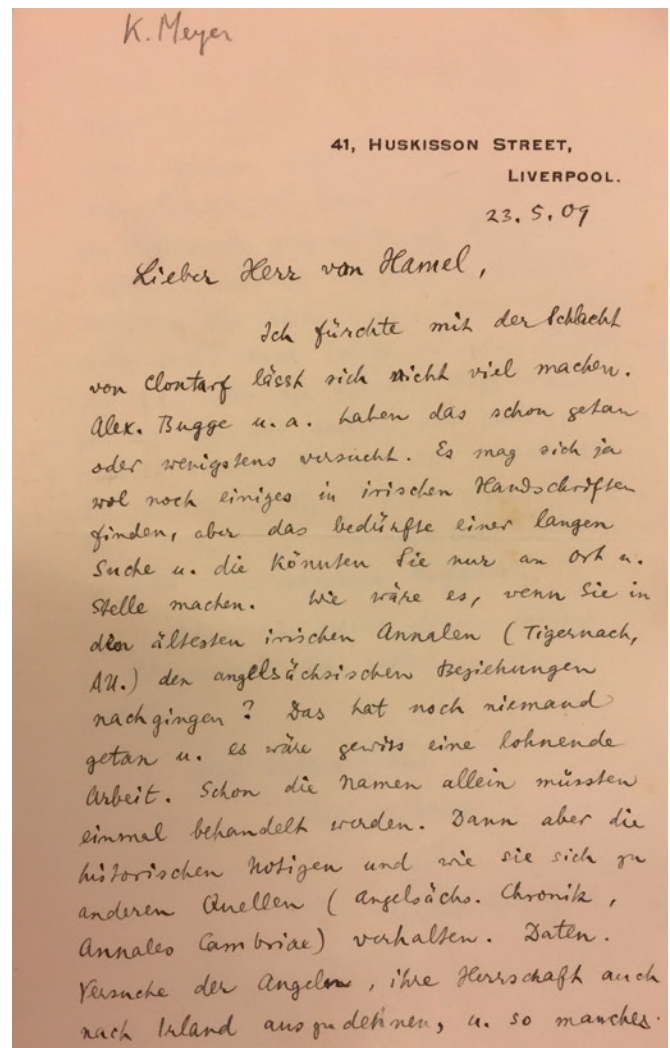 K. Meyer
41, HUSKISSON STREET,
LIVERPOOL.
23. 5. 09
Lieber Herr van Hamel,
Ich fürchte mit der Schlacht
von Clontarf lässt sich nicht viel machen.
Alex. Bugge u. a. haben das schon getan
oder wenigstens versucht. Es mag sich ja
wol noch einiges in irischen Handschriften
finden, aber das bedürfte einer langen
Suche u. die könnten Sie nur an Ort u.
Stelle machen. Wie wäre es, wenn Sie in
den ältesten irischen Annalen (Tigernach,
AU.) den angelsächsischen Beziehungen
nachgingen? Das hat noch niemand
getan u. es wäre gewiss eine lohnende
Arbeit. Schon die Namen allein müssten
einmal behandelt werden. Dann aber die
historischen Notizen und wie sie sich zu
anderen Quellen (Angelsächs. Chronik,
Annales Cambriae) verhalten. Daten.
Versuche der Angeln, ihre Herrschaft auch
nach Irland auszudehnen, u. so manches.